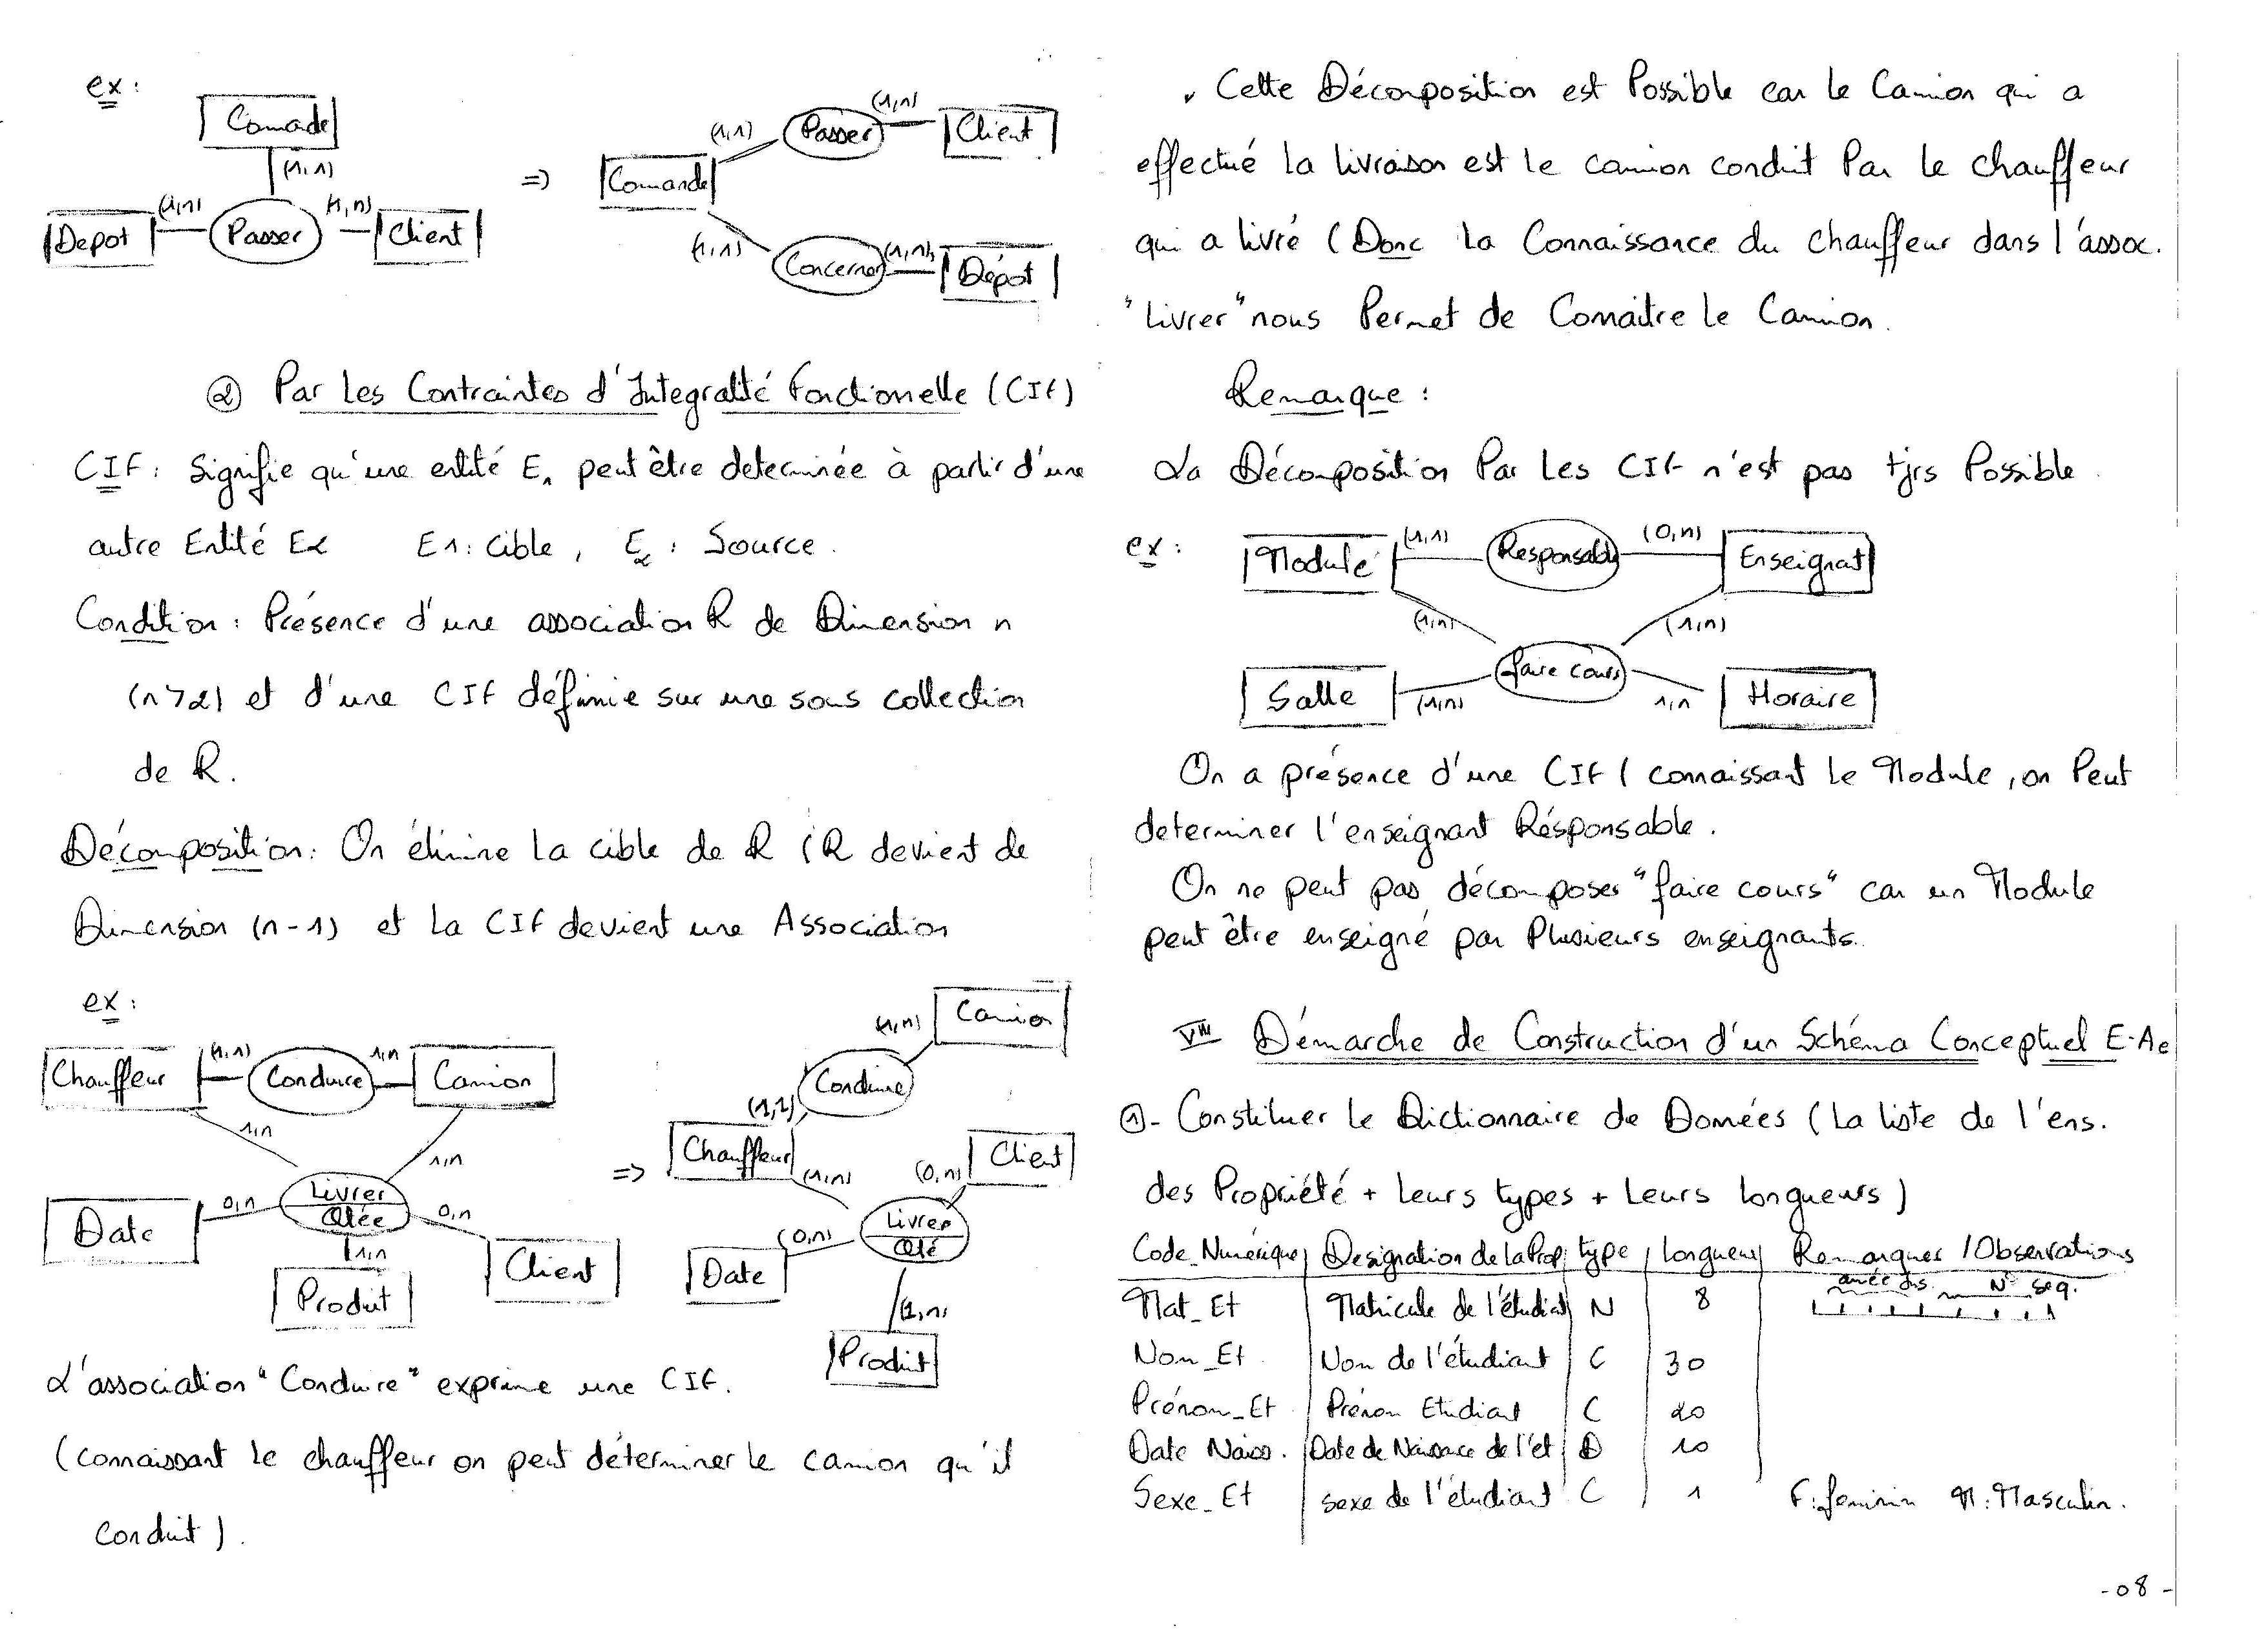 ex :
Comade
(1,1)
(1,n)
(1,n)
Depot
Passer
Client
=>
Comande
(1,1)
Passer
(1,n)
Client
(1,1)
Concerner
(1,n)
Dépot
② Par Les Contraintes d'Integralité Fonctionnelle (CIF)
CIF : Signifie qu'une entité E1 peut être determinée à partir d'une
autre Entité E2 E1 : Cible , E2 : Source .
Condition : Présence d'une association R de Dimension n
(n>2) et d'une CIF définie sur une sous collection
de R.
Décomposition : On élimine La cible de R (R devient de
Dimension (n-1) et La CIF devient une Association
ex :
Chauffeur
(1,1)
Conduire
1,n
Camion
1,n
1,n
Date
0,n
Livrer
Qtée
0,n
1,n
Produit
Client
=>
Camion
(1,n)
Conduire
(1,1)
Chauffeur
(1,n)
(0,n)
Client
Date
(0,n)
Livrer
Qté
(1,n)
Produit
L'association "Conduire" exprime une CIF.
(connaissant Le chauffeur on peut déterminer Le camion qu'il
conduit ) .
Cette Décomposition est Possible car Le Camion qui a
effectué La Livraison est Le camion conduit Par Le chauffeur
qui a livré ( Donc La Connaissance du chauffeur dans l'assoc.
"Livrer" nous Permet de Connaitre Le Camion .
Remarque :
La Décomposition Par Les CIF n'est pas tjrs Possible .
ex :
Module
(1,1)
Responsable
(0,n)
Enseignat
(1,n)
(1,n)
Salle
(1,n)
faire cours
1,n
Horaire
On a présence d'une CIF ( connaissant Le Module , on Peut
determiner l'enseignant Résponsable .
On ne peut pas décomposer "faire cours" car un Module
peut être enseigné par Plusieurs enseignants .
VIII Démarche de Construction d'un Schéma Conceptuel E-A
①- Constituer Le Dictionnaire de Données ( La liste de l'ens.
des Propriété + Leurs types + Leurs longueurs )
Code_Numérique Designation de la Prop type longueur Remarques / Observations
N° seq.
Mat_Et Matricule de l'étudiat N 8
Nom_Et Nom de l'étudiant C 30
Prénom_Et Prénom Etudiant C 20
Date Naiss. Date de Naissance de l'et D 10
Sexe_Et sexe de l'étudiant C 1 F : feminin M : Masculin .
- 08 -